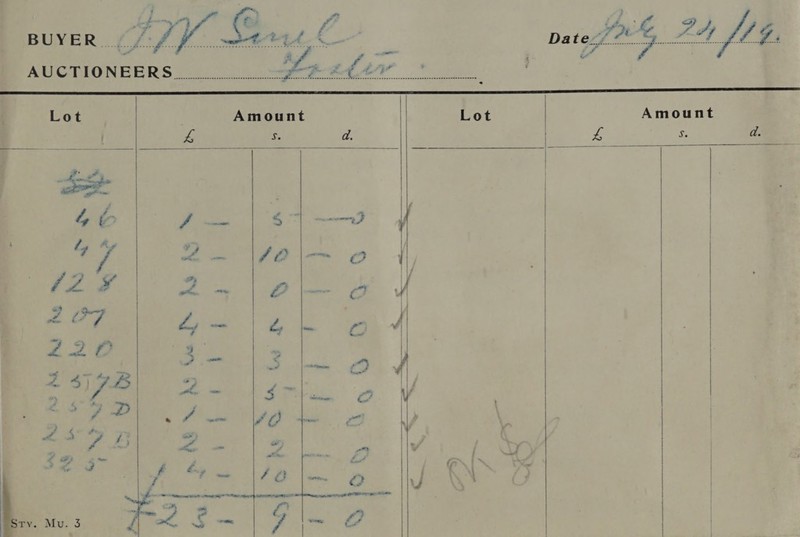 BUYER J W
Date July 24/19.
AUCTIONEERS Foster.
Lot Amount Lot Amount
£ s. d. £ s. d.
52
46 1 — 5 — 0 ✓
47 2 — 10 — 0 ✓
128 2 — 0 — 0 ✓
207 4 — 4 — 0 ✓
220 3 — 3 — 0 ✓
257B 2 — 5 — 0 ✓
257D 1 — 10 — 0 ✓
257B 2 — 2 — 0 ✓
325 4 — 10 — 0 ✓
OK
£23 — 9 — 0
STY. MU. 3